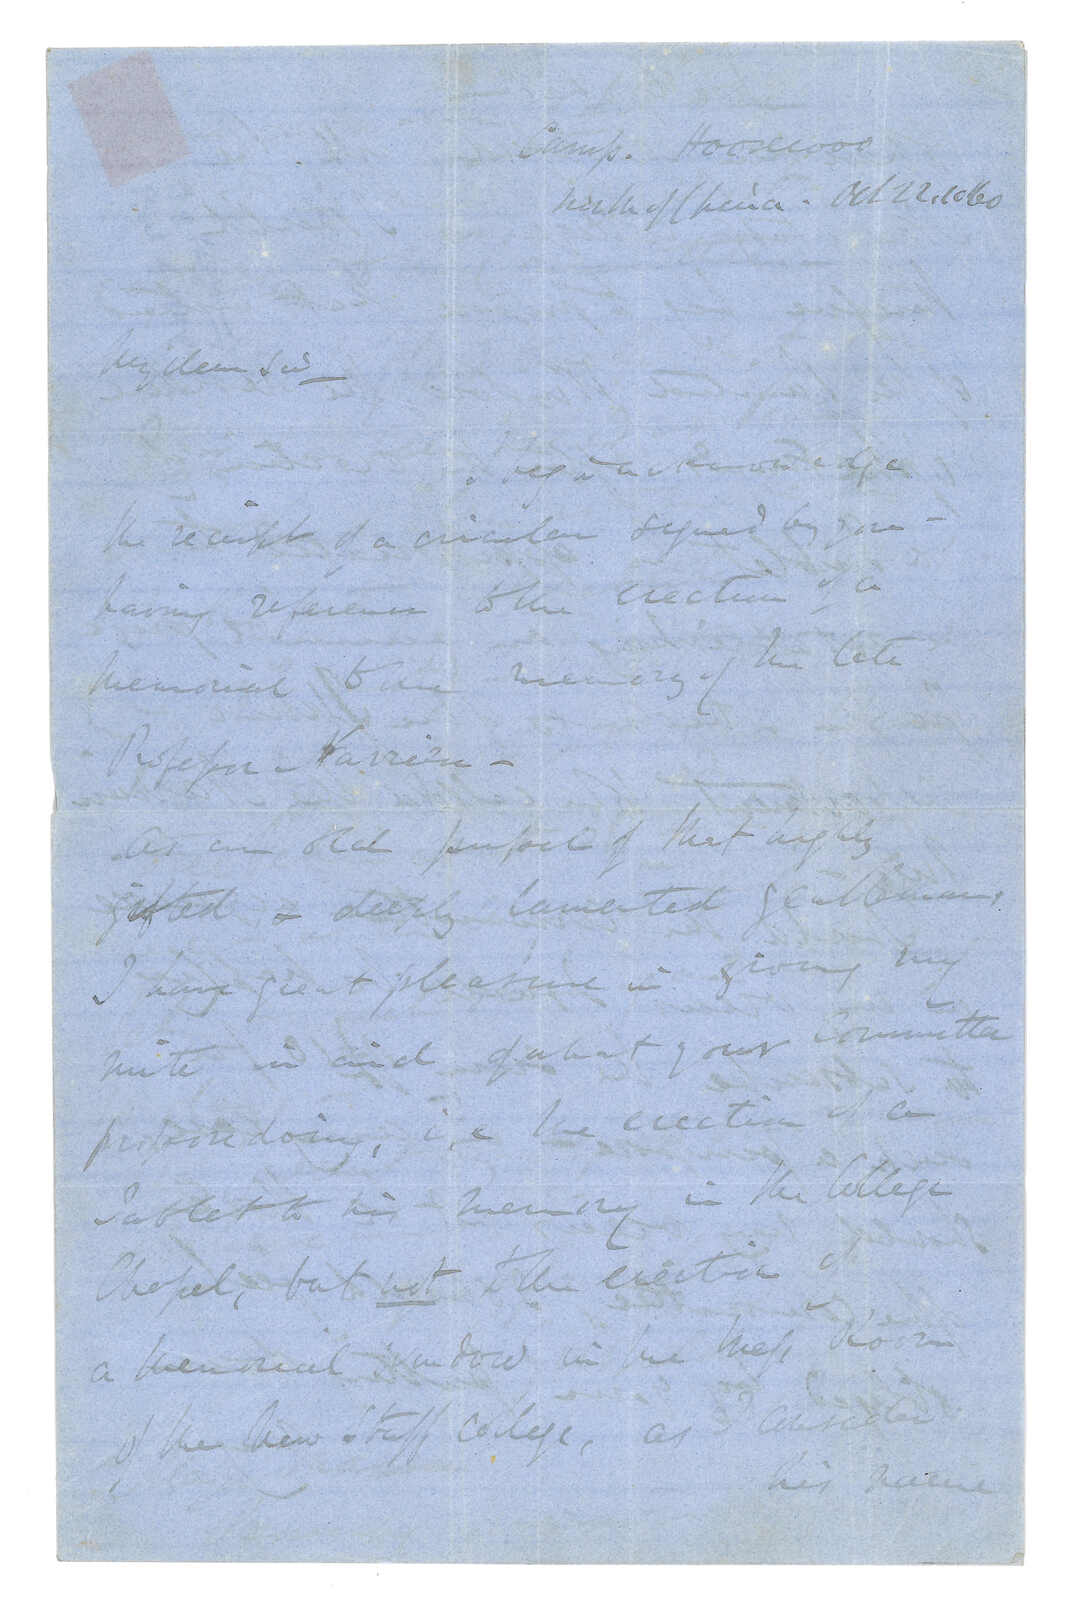 Camp. Hooseewoo
North of China - Oct 22, 1860
My dear Sir
I beg to acknowledge
the receipt of a circular signed by you -
having reference to the erection of a
Memorial to the memory of the late
Professor - Narrien -
As an old pupil of that highly
gifted & deeply lamented gentleman,
I have great pleasure in giving my
mite in aid of what your Committee
propose doing, i,e the erection of a
Tablet to his memory in the College
Chapel, but not to the erection of
a Memorial window in the Mess Room
of the New Staff College, as I consider
his name